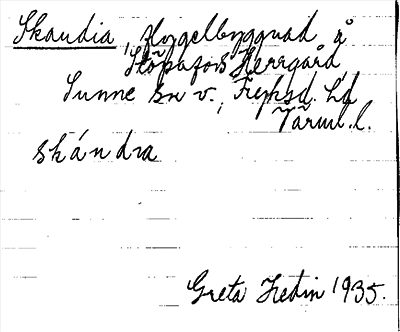 Skandia, flygelbyggnad å
Stöpafors Herrgård
Sunne sn v., Fryksd. hd
Värml. l.
skándia
Greta Hedin 1935.